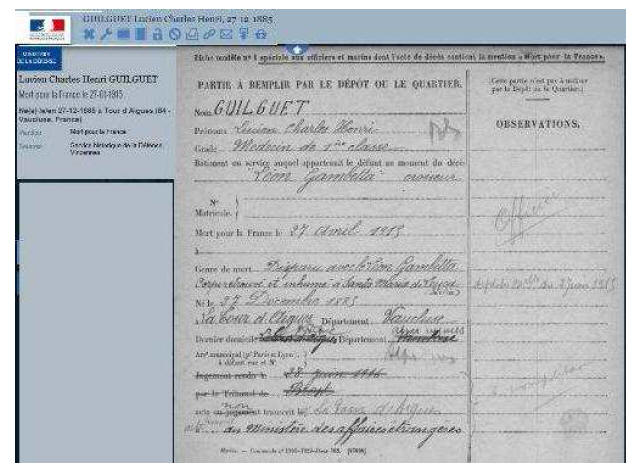 GUILGUET Lucien Charles Henri, 27-12-1885
MINISTÈRE
DE LA DÉFENSE
Lucien Charles Henri GUILGUET
Mort pour la France le 27-04-1915
Né(e) le/en 27-12-1885 à Tour d'Aigues (84 -
Vaucluse, France)
Mention Mort pour la France
Source Service historique de la Défense,
Vincennes
Fiche modèle n° 1 spéciale aux officiers et marins dont l'acte de décès contient la mention « Mort pour la France».
PARTIE A REMPLIR PAR LE DÉPÔT OU LE QUARTIER.
Nom GUILGUET
Prénoms Lucien Charles Henri
Grade Médecin de 1ère classe
Bâtiment ou service auquel appartenait le défunt au moment du décès
"Léon Gambetta" croiseur
N°
Matricule.
Mort pour la France le 27 Avril 1915
à
Genre de mort Disparu avec le Léon Gambetta
Corps retrouvé et inhumé à Santa Maria di Leuca
Né le 27 Décembre 1885
à La Tour d'Aigues Département Vaucluse
Dernier domicile Département
Arr^t municipal (p^r Paris et Lyon)
à défaut rue et N°
Jugement rendu le 28 juin 1916
par le Tribunal de Brest
acte ou jugement transcrit le La Tour d'Aigues
du Ministère des affaires étrangères
Cette partie n'est pas à utiliser
par le Dépôt ou le Quartier.
OBSERVATIONS.
Officier